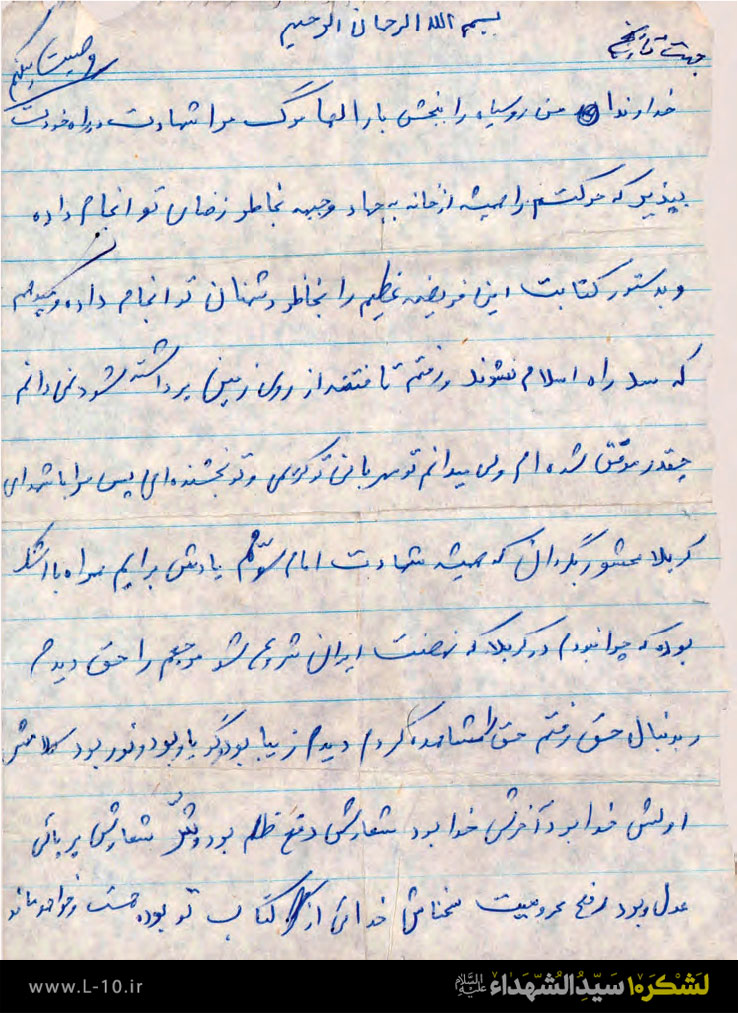 بسم الله الرحمان الرحیم
جهت تاریخ
وصیت میکنم
خداوندا من روسیاه را ببخش بارالها مرگ مرا شهادت در راه خودت
بپذیر که حرکتم را همیشه از خانه به جهاد و جبهه بخاطر رضای تو انجام داده
و بدستور کتابت این فریضه عظیم را بخاطر دشمنان تو انجام داده و میدهم
که سد راه اسلام نشوند رفتم تا فتنه از روی زمین برداشته شود نمی دانم
چقدر موفق شده ام ولی میدانم تو مهربانی تو کریمی و تو بخشنده ای پس مرا با شهدای
کربلا محشور بگردان که همیشه شهادت امام سوّم یادش برایم همراه با اشک
بوده که چرا نبودم در کربلا که نهضت ایران شروع شد مرجعم را حق دیدم
و بدنبال حق رفتم حق را مشاهده کردم دیدم زیبا بود گویا بود و نور بود کلامش
اولش خدا بود آخرش خدا بود شعارش دفع ظلم بود و شعارش برپائی
عدل و بود رفع محرومیت سخنانش خدائی از کتاب تو بوده هست و خواهد ماند
www.L-10.ir
لشکر۱۰ سیّد الشهداء علیه السلام